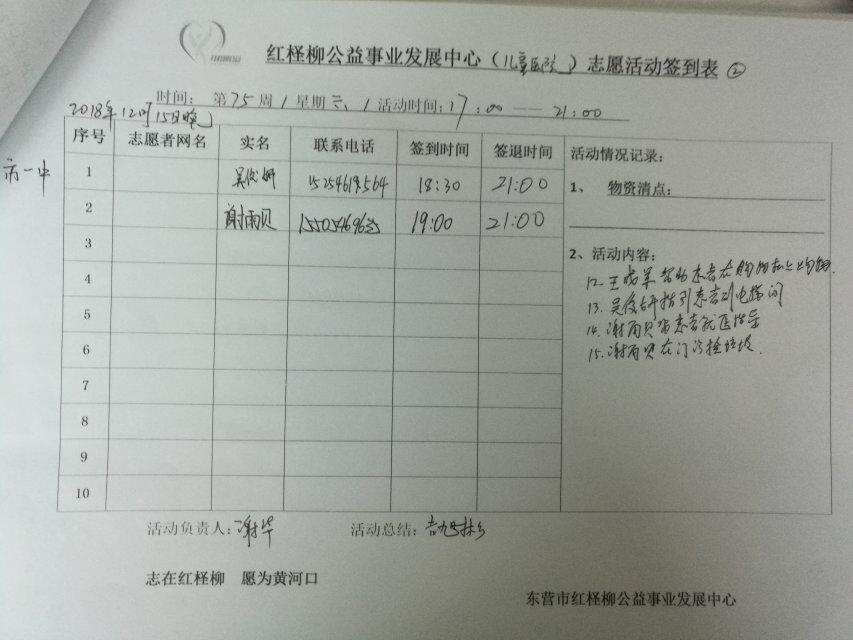 红柽柳公益事业发展中心（儿童医院）志愿活动签到表②
时间：第75周/星期六/活动时间:17:00——21:00
2018年12月15日晚
序号 志愿者网名 实名 联系电话 签到时间 签退时间
市一中
1 吴俊妍 18:30 21:00
2 谢雨贝 19:00 21:00
3
4
5
6
7
8
9
10
活动情况记录：
1、 物资清点：
2、活动内容：
12.王 患者在购物机上购物.
13.吴俊妍指引患者到电梯间
14.谢雨贝 患者就医指导
15.谢雨贝在门诊捡垃圾.
活动负责人:谢华 活动总结:
志在红柽柳 愿为黄河口
东营市红柽柳公益事业发展中心